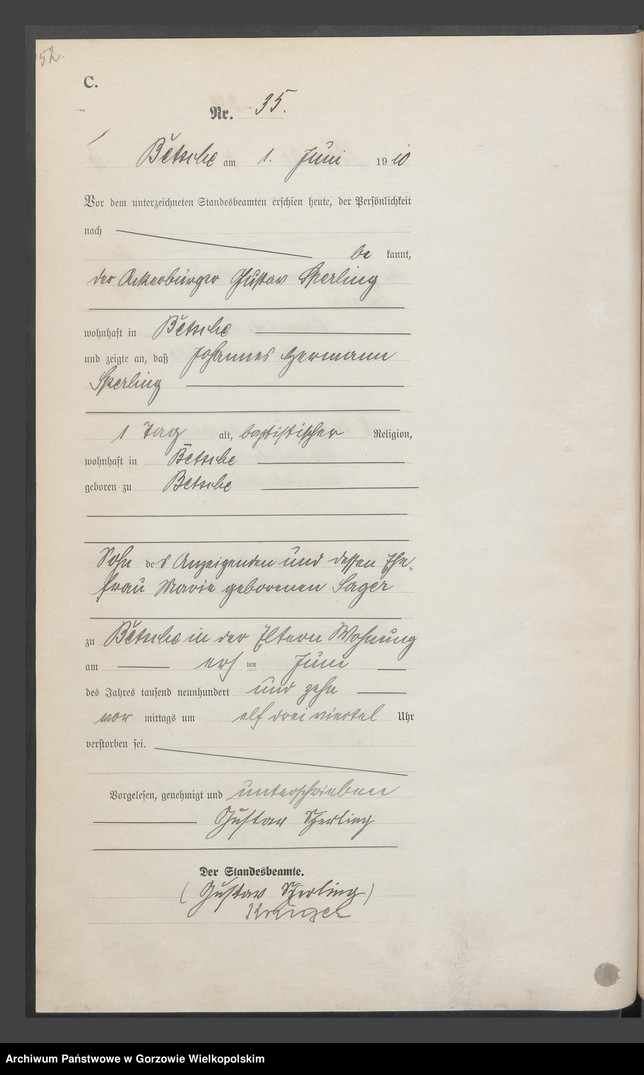 52.
C.
Nr. 35.
Betsche am 1. Juni 1910
Vor dem unterzeichneten Standesbeamten erschien heute, der Persönlichkeit
nach
be kannt,
der Ackerbürger Gustav Sperling
wohnhaft in Betsche
und zeigte an, daß Johannes Hermann
Sperling
1 Tag alt, baptistischer Religion,
wohnhaft in Betsche
geboren zu Betsche
Sohn des Anzeigenden und dessen Ehe-
frau Marie geborenen Sager
zu Betsche in der Eltern Wohnung
am ersten Juni
des Jahres tausend neunhundert und zehn
vor mittags um elf dreiviertel Uhr
verstorben sei.
Vorgelesen, genehmigt und unterschrieben
Gustav Sperling
Der Standesbeamte.
(Gustav Sperling)
Archiwum Państwowe w Gorzowie Wielkopolskim